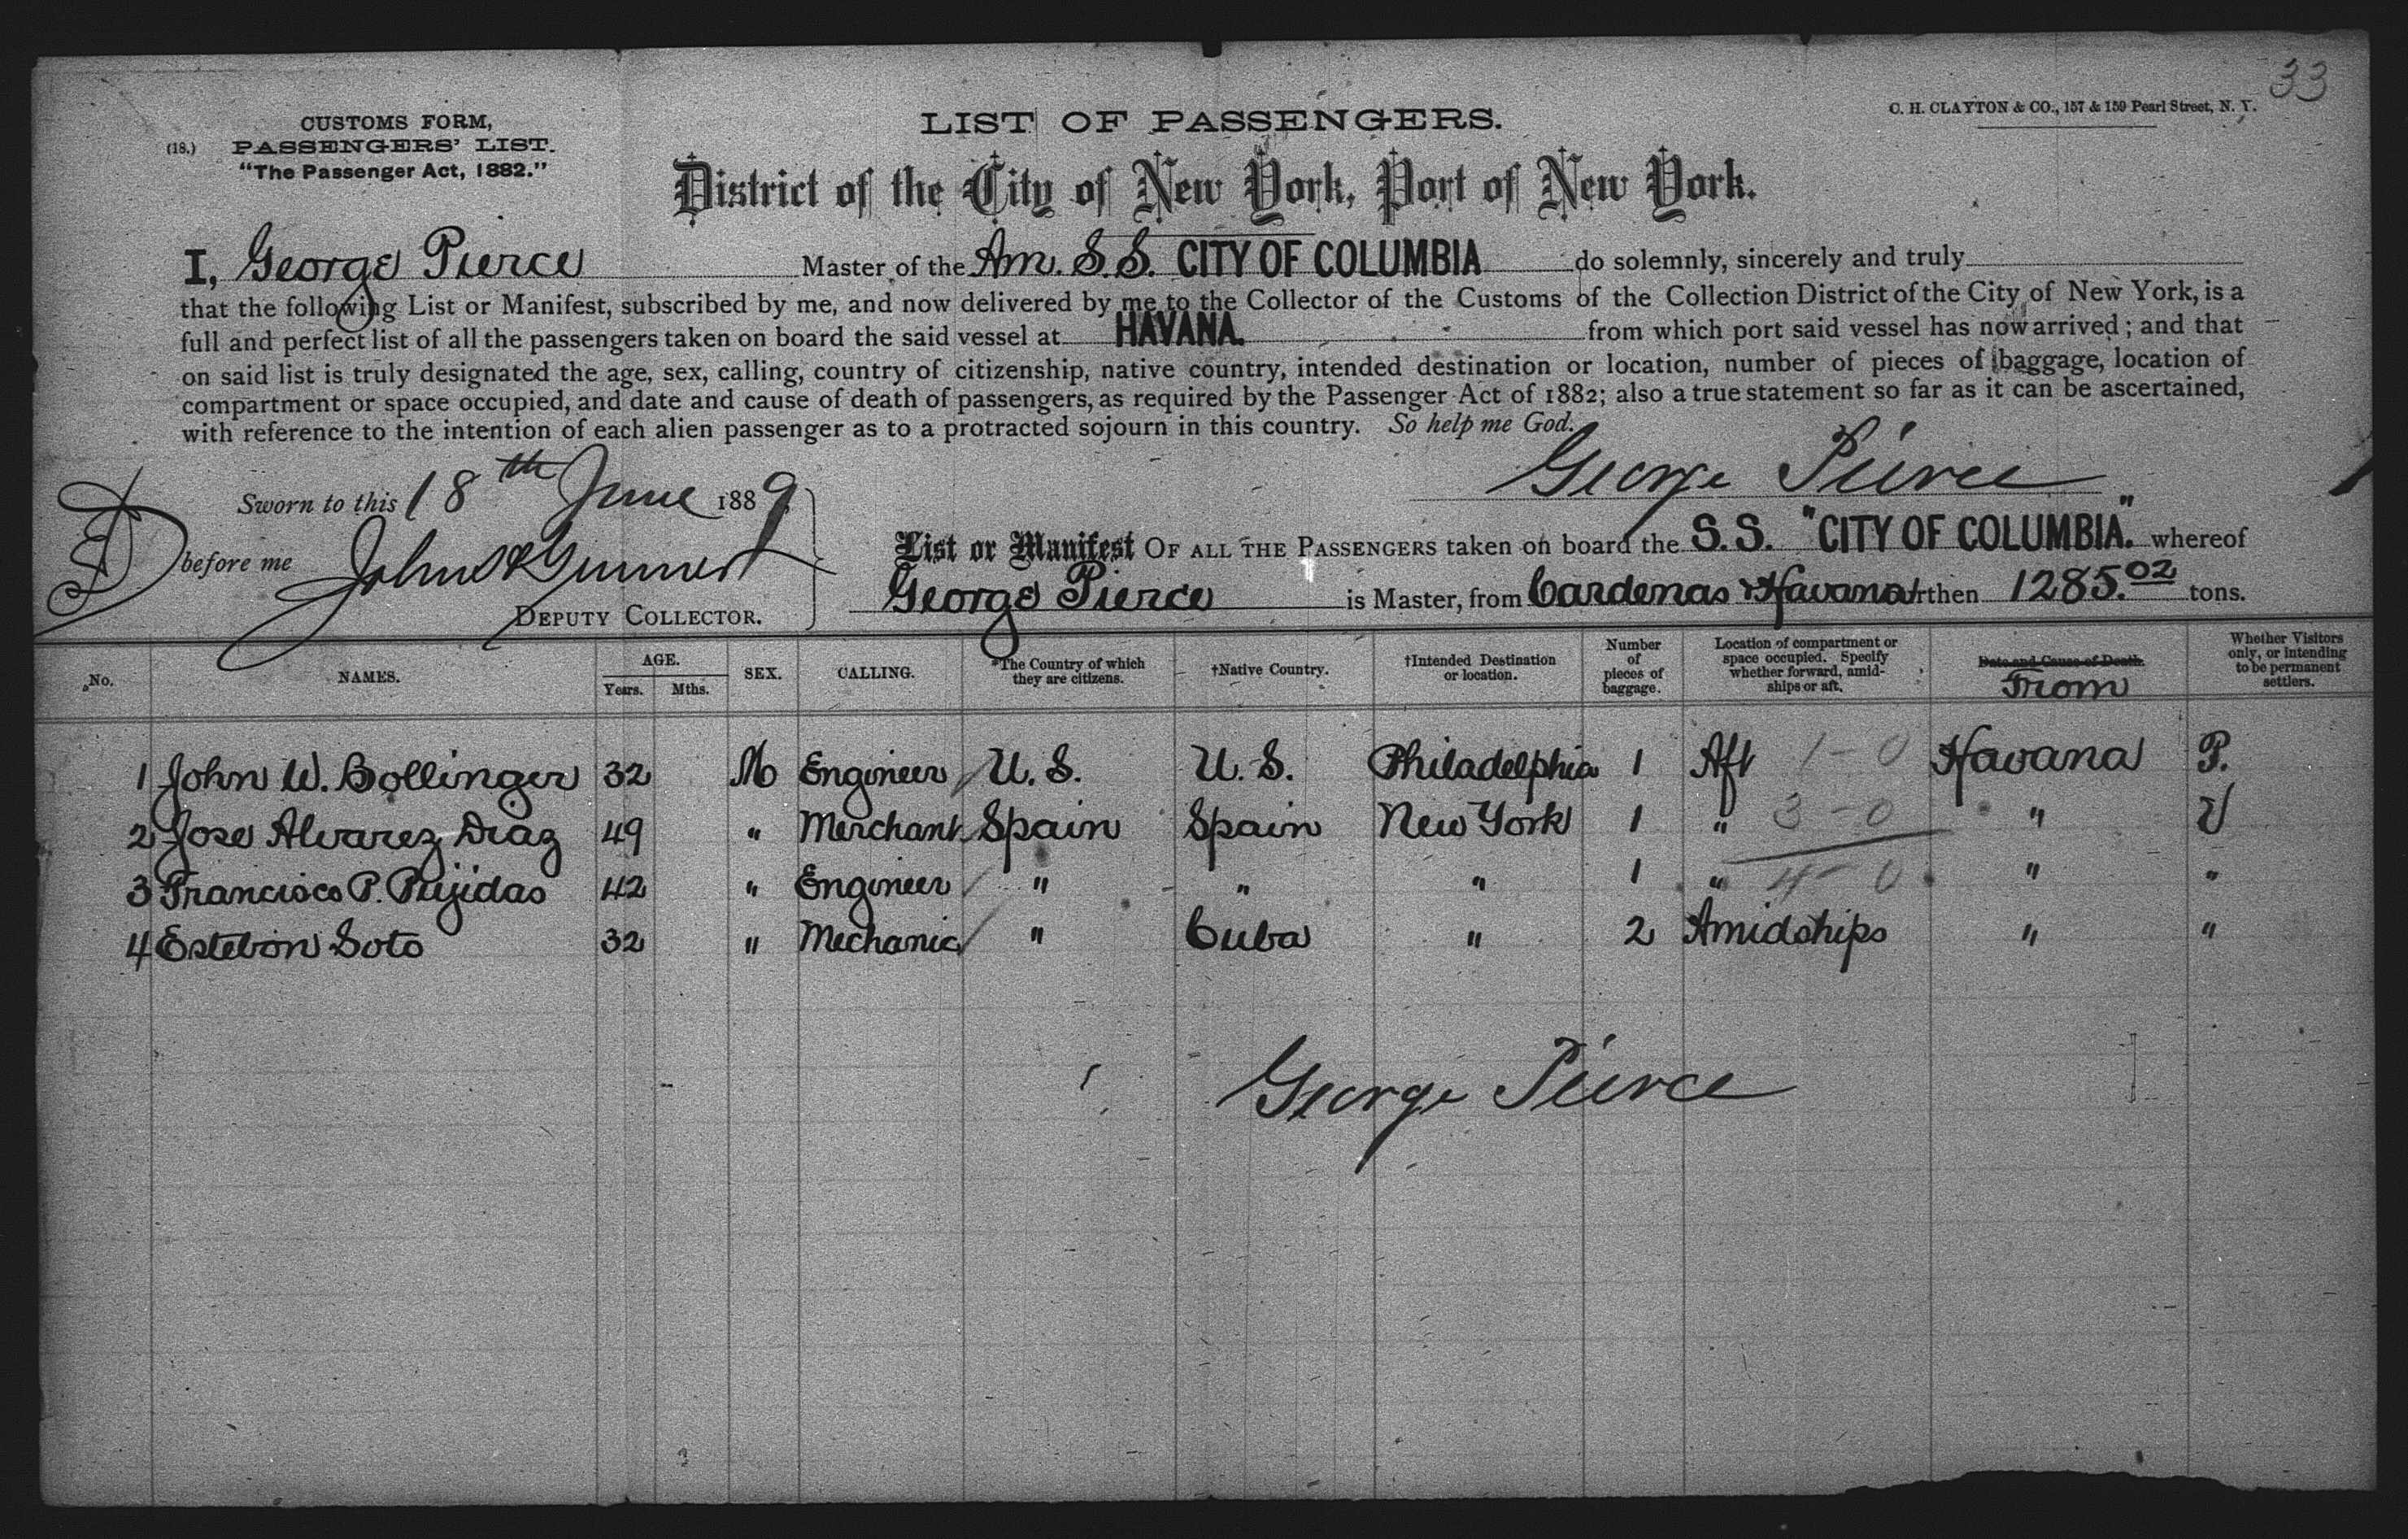 33
CUSTOMS FORM,
(18.) PASSENGERS' LIST.
"The Passenger Act, 1882."
LIST OF PASSENGERS.
C. H. CLAYTON & CO., 157 & 159 Pearl Street, N. Y.
District of the City of New York, Port of New York.
I, George Pierce Master of the Am. S.S. CITY OF COLUMBIA do solemnly, sincerely and truly
that the following List or Manifest, subscribed by me, and now delivered by me to the Collector of the Customs of the Collection District of the City of New York, is a
full and perfect list of all the passengers taken on board the said vessel at HAVANA. from which port said vessel has now arrived; and that
on said list is truly designated the age, sex, calling, country of citizenship, native country, intended destination or location, number of pieces of baggage, location of
compartment or space occupied, and date and cause of death of passengers, as required by the Passenger Act of 1882; also a true statement so far as it can be ascertained,
with reference to the intention of each alien passenger as to a protracted sojourn in this country. So help me God.
George Pierce
Sworn to this 18th June 1889
before me John
DEPUTY COLLECTOR.
List or Manifest OF ALL THE PASSENGERS taken on board the S.S. "CITY OF COLUMBIA." whereof
George Pierce is Master, from Cardenas & Havana burthen 1285.02 tons.
No. NAMES. AGE. Years. Mths. SEX. CALLING. *The Country of which they are citizens. †Native Country. †Intended Destination or location. Number of pieces of baggage. Location of compartment or space occupied. Specify whether forward, amidships or aft. Date and Cause of Death. From Whether Visitors only, or intending to be permanent settlers.
1 John W. Bollinger 32 M Engineer U. S. U. S. Philadelphia 1 Aft 1-0 Havana P.
2 Jose Alvarez Diaz 49 " Merchant Spain Spain New York 1 " 3-0 " V
3 Francisco P. Pujidas 42 " Engineer " " " 1 " 4-0 " "
4 Estebon Soto 32 " Mechanic " Cuba " 2 Amidships " "
George Pierce